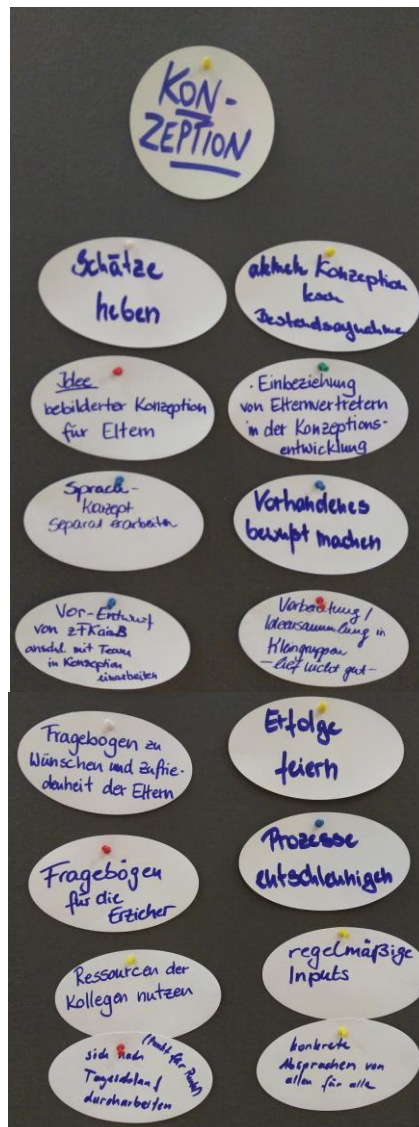 KON-
ZEPTION
Schätze
heben
aktuelle Konzeption
lesen
Bestandsaufnahme
Idee
bebilderter Konzeption
für Eltern
· Einbeziehung
von Elternvertretern
in der Konzeptions-
entwicklung
Sprach-
Konzept
separat erarbeiten
Vorhandenes
bewußt machen
Vor-Entwurf
von
anschl. mit Team
in Konzeption
einarbeiten
Vorbereitung /
Ideensammlung in
Kleingruppen
- lief nicht gut -
Fragebögen zu
Wünschen und Zufrie-
denheit der Eltern
Erfolge
feiern
Fragebögen
für die
Erzieher
Prozesse
entschleunigen
Ressourcen der
Kollegen nutzen
regelmäßige
Inputs
(Punkt für Punkt)
sich nach
Tagesablauf
durcharbeiten
konkrete
Absprachen von
allen für alle